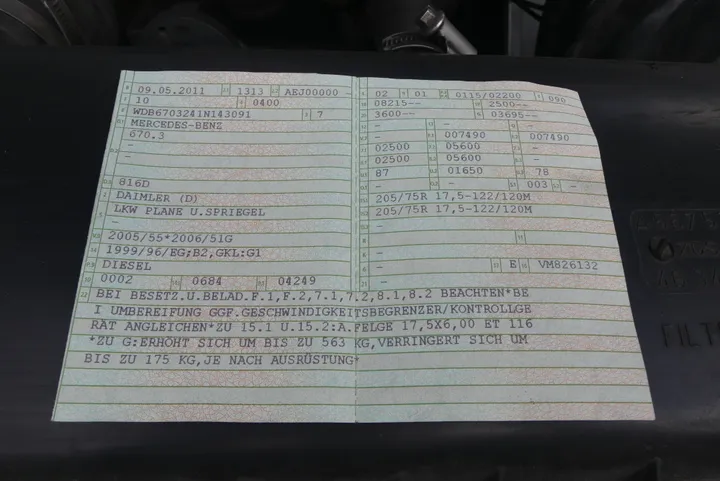 09.05.2011 1313 AEJ00000--
10 0400
WDB6703241N143091 7
MERCEDES-BENZ
670.3
-
-
816D
DAIMLER (D)
LKW PLANE U.SPRIEGEL
-
2005/55*2006/51G
1999/96/EG;B2,GKL:G1
DIESEL
0002 0684 04249
02 01 0115/02200 090
08215-- 2500--
3600-- 03695--
- - -
- 007490 007490
02500 05600 -
02500 05600 -
87 01650 78
- - 003 --
205/75R 17,5-122/120M
205/75R 17,5-122/120M
-
-
-
- E VM826132
-
BEI BESETZ.U.BELAD.F.1,F.2,7.1,7.2,8.1,8.2 BEACHTEN*BE
I UMBEREIFUNG GGF.GESCHWINDIGKEITSBEGRENZER/KONTROLLGE
RAT ANGLEICHEN*ZU 15.1 U.15.2:A.FELGE 17,5X6,00 ET 116
*ZU G:ERHÖHT SICH UM BIS ZU 563 KG,VERRINGERT SICH UM
BIS ZU 175 KG,JE NACH AUSRÜSTUNG*